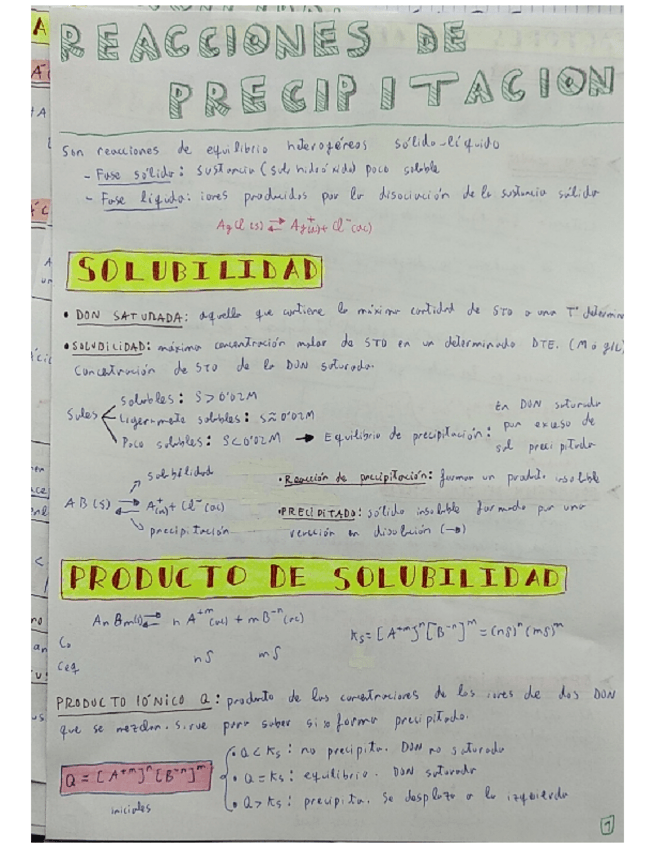 REACCIONES DE
PRECIPITACION
Son reacciones de equilibrio heterogéneos sólido-líquido
- Fase sólida: sustancia (sal, hidróxido) poco soluble
- Fase líquida: iones producidos por la disociación de la sustancia sólida
AgCl (s) ⇄ Ag+(ac) + Cl-(ac)
SOLUBILIDAD
• DON SATURADA: aquella que contiene la máxima cantidad de STO a una Tª determin
• SOLUBILIDAD: máxima concentración molar de STO en un determinado DTE. (M o g/L)
Concentración de STO de la DON saturada.
Sales
solubles: S>0'02M
Ligeramente solubles: S≈0'02M
Poco solubles: S<0'02M → Equilibrio de precipitación:
En DON saturada
por exceso de
sal precipitada
solubilidad
AB(s) ⇄ A+(ac) + Cl-(ac)
precipitación
• Reacción de precipitación: forman un producto insoluble
• PRECIPITADO: sólido insoluble formado por una
reacción en disolución (→)
PRODUCTO DE SOLUBILIDAD
AnBm(s) ⇄ n A+m(ac) + m B-n(ac)
Ks=[A+m]n[B-n]m=(nS)n(mS)m
Co
Ceq nS mS
PRODUCTO IÓNICO Q: producto de las concentraciones de los iones de dos DON
que se mezclan. Sirve para saber si se forma precipitado.
Q=[A+m]n[B-n]m
iniciales
• Q<Ks: no precipita. DON no saturada
• Q=Ks: equilibrio. DON saturada
• Q>Ks: precipita. Se desplaza a la izquierda
1